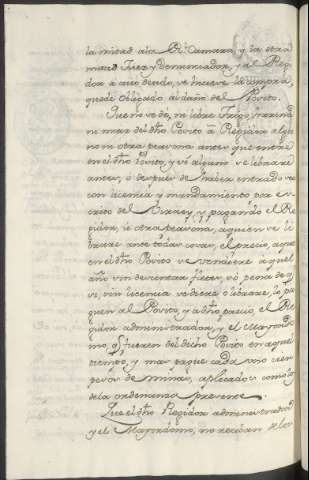 la mitad a la Rl. Camara, y la otra
mitad Juez y Denunciador, y al Regi-
dor a quien
quede obligado al daño del Posito.
Que no se dé, ni libre Trigo, harina
ni mas del dho. Posito a Regidor algu-
no ni otra persona antes que entre
en el dho. Posito, y si alguno se librare
antes, ó despues de haber entrado sea
con licencia y mandamiento por es-
crito del Virrey, y pagando el Re-
gidor, ú otra persona, a quien se li-
brare ante todas cosas, el precio, a que
en el dho. Posito se vendiere aquel
año sin descontar fletes, só pena de q.
si, sin licencia se diere ó librare, lo pa-
guen al Posito, y a dho. precio, el Re-
gidor administrador, y el Mayordo-
mo, q. fueren del dicho Posito en aquel
tiempo, y mas pague cada uno cien
pesos de minas, aplicados como lo
de la ordenanza previene.
Que el dho. Regidor administrador
y el Mayordomo, no reciban de los